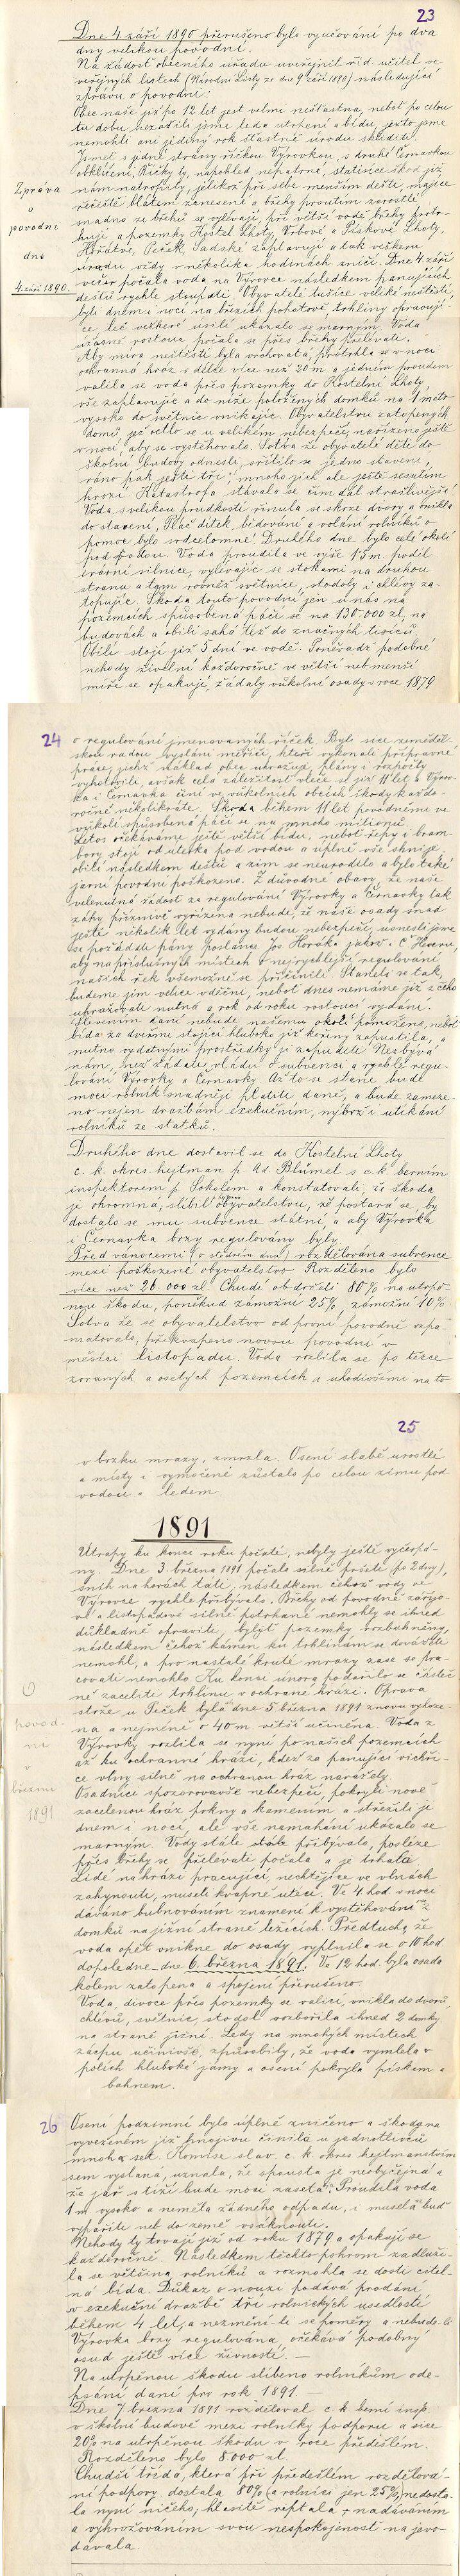 23
Dne 4 září 1890 přerušeno bylo vyučování po dva
dny velikou povodní.
Na žádost obecního úřadu uveřejnil říd. učitel ve
veřejných listech (Národní Listy ze dne 9 září 1890) následující
zprávu o povodni:
Obec naše již po 12 let jest velmi nešťastna, neboť po celou
tu dobu nezažili jsme leda utrpení a bídu, ježto jsme
nemohli ani jediný rok šťastně úrodu skliditi.
Jsmeť s jedné strany říčkou Výrovkou, s druhé Černavkou
obklíčeni. Říčky ty, napohled nepatrné, statisíce škod již
nám natropily, jelikož při sebe menším dešti, majíce
řečiště blátem zanesené a břehy proutím zarostlé
snadno ze břehů se vylévají, při větší vodě břehy protr-
hují a pozemky Kostel. Lhoty, Vrbové a Pískové Lhoty,
Hořátve, Peček, Sadské zaplavují a tak veškeru
úrodu vždy v několika hodinách zničí. Dne 4. září
večer počala voda na Výrovce následkem panujících
dešťů rychle stoupati. Obyvatelé tušíce veliké neštěstí,
byli dnem i nocí na březích pohotově trhliny opravují-
ce, leč veškeré úsilí ukázalo se marným. Voda
úžasně rostouc počala se přes břehy přelévati.
Aby míra neštěstí byla vrchovatá, protrhla se v noci
ochranná hráz v délce více než 20 m a jedním proudem
valila se voda přes pozemky do Kostelní Lhoty,
vše zaplavujíc a do níže položených domků na 1 metr
vysoko do světnic vnikajíc. Obyvatelstvu zatopených
domů, jež octlo se u velikém nebezpečí, nařízeno ještě
v noci, aby se vystěhovalo. Sotva že obyvatelé děti do
školní budovy odnesli, sřítilo se jedno stavení,
ráno pak ještě tři, mnoho jich ale ještě sesutím
hrozí. Katastrofa stávala se čím dál strašlivější.
Voda s velikou prudkostí řinula se skrze dvory a vnikla
do stavení. Pláč dítek, bědování a volání rolníků o
pomoc bylo srdcelomné. Druhého dne bylo celé okolí
pod vodou. Voda proudila ve výše 1·5 m podél
erární silnice, vylévajíc se stokami na druhou
stranu a tam rovněž světnice, stodoly i chlévy za-
topujíc. Škoda touto povodní jen u nás na
pozemcích spůsobená páčí se na 130.000 zl, na
budovách a obilí sahá též do značných tisíců.
Obilí stojí již 5 dní ve vodě. Poněvadž podobné
nehody živelní každoročně ve větší neb menší
míře se opakují, žádaly vůkolní osady v roce 1879
Zpráva
o
povodni
dne
4. září 1890.
24
o regulování jmenovaných říček. Byli sice zeměděl-
skou radou vysláni měřiči, kteří vykonali přípravné
práce, jichž náklad obec uhrazuje, plány i rozpočty
vyhotovili, avšak celá záležitost vleče se již 11 let a Výrov-
ka i Černavka činí ve vůkolních obcích škody každo-
ročně několikráte. Škoda během 11 let povodněmi ve
vůkolí spůsobená páčí se na mnoho milionů.
Letos očekáváme ještě větší bídu, neboť řepy i bram-
bory stojí od úterka pod vodou a úplně vše shnije,
obilí následkem dešťů a zim se neurodilo a bylo také
jarní povodní poškozeno. Z důvodné obavy, že naše
velenutná žádost za regulování Výrovky a Černavky tak
záhy příznivě vyřízena nebude, že naše osady snad
ještě několik let vydány budou nebezpečí, usnesli jsme
se požádati pány poslance Jos Horáka jakož i C. Hevera,
aby na příslušných místech o nejrychlejší regulování
našich řek všemožně se přičinili. Stane-li se tak,
budeme jim velice vděčni, neboť dnes nemáme již z čeho
uhrazovati nutná a rok od roku rostoucí vydání.
Slevením daní nebude našemu okolí pomoženo, neboť
bída za dveřmi stojící hluboko již kořeny zapustila, a
nutno vydatnými prostředky ji zapuditi. Nezbývá
nám, než žádati vládu o subvenci a rychlé regu-
lování Výrovky a Černavky. Až to se stane, bude
moci rolník snadněji platiti daně, a bude zameze-
no nejen dražbám exekučním, nýbrž i utíkání
rolníků ze statků.
Druhého dne dostavil se do Kostelní Lhoty
c. k. okres. hejtman p. Ad. Blümel s c. k. berním
inspektorem p. Sokolem a konstatovali, že škoda
je ohromná, slíbil obyvatelstvu, že postará se, by
dostalo se mu subvence státní, a aby Výrovka
i Černavka brzy regulovány byly.
Před vánocemi (o štědrém dnu) rozdělována subvence
mezi poškozené obyvatelstvo. Rozděleno bylo
více než 26.000 zl. Chudí obdrželi 80% na utrpě-
nou škodu, poněkud zámožní 25%, zámožní 10%.
Sotva že se obyvatelstvo od první povodně vzpa-
matovalo, překvapeno novou povodní v
měsíci listopadu. Voda rozlila se po těžce
zoraných a osetých pozemcích a uhodivšími na to
25
v brzku mrazy, zmrzla. Osení slabě vzrostlé
a místy i vymočené zůstalo po celou zimu pod
vodou a ledem.
1891
Útrapy ku konci roku počaté, nebyly ještě vyčerpá-
ny. Dne 3. března 1891 počalo silně pršeti (po 2 dny),
sníh na horách táti, následkem čehož vody ve
Výrovce rychle přibývalo. Břehy od povodně zářijo-
vé a listopadové silně potrhané nemohly se ihned
důkladně opraviti, bylyť pozemky rozbahněny,
následkem čehož kámen ku trhlinám se dovážeti
nemohl, a pro nastalé kruté mrazy zase se pra-
covati nemohlo. Ku konci února podařilo se částeč-
ně zaceliti trhlinu v ochranné hrázi. Oprava
strže u Peček byla dne 5 března 1891 znovu vyhoze-
na a nejméně o 40 m větší učiněna. Voda z
Výrovky rozlila se nyní po našich pozemcích
až ku ochranné hrázi, kdež za panující vichři-
ce vlny silně na ochranou hráz narážely.
Osadníci zpozorovavše nebezpečí, pokryli nově
zacelenou hráz prkny a kamením a střežili ji
dnem i nocí, ale vše namáhání ukázalo se
marným. Vody stále přibývalo, posléze
přes břehy se přelévati počala a je trhala.
Lidé na hrázi pracující, nechtějíce ve vlnách
zahynouti, museli kvapně utéci. Ve 4 hod. v noci
dáváno bubnováním znamení k vystěhování z
domků na jižní straně ležících. Předtucha, že
voda opět vnikne do osady vyplnila se o 10 hod.
dopoledne dne 6. března 1891. Ve 12 hod. byla osada
kolem zatopena a spojení přerušeno.
Voda, divoce přes pozemky se valící, vnikla do dvorů,
chlévů, světnic, stodol, rozbořila ihned 2 domky
na straně jižní. Ledy na mnohých místech
zácpu učinivše, způsobily, že voda vymlela v
polích hluboké jámy a osení pokryla pískem a
bahnem.
O
povod-
ni
v
březnu
1891
26
Osení podzimní bylo úplně zničeno a škoda na
vyvezeném již hnojivu činila u jednotlivců
mnoho set. Komise slav. c. k. okres. hejtmanstvím
sem vyslaná, uznala, že spousta je neobyčejná a
že jař stíží bude moci zaseta. Proudila voda
1 m vysoko a neměla žádného odpadu, i musela buď
vypařiti neb do země vsáknouti.
Nehody ty trvají již od roku 1879 a opakují se
každoročně. Následkem těchto pohrom zadluži-
la se většina rolníků a rozmohla se dosti citel-
ná bída. Důkaz o nouzi podává prodání
v exekuční dražbě tří rolnických usedlostí
během 4 let, a nezmění-li se poměry a nebude-li
Výrovka brzy regulována, očekává podobný
osud ještě více živností. —
Na utrpěnou škodu slíbeno rolníkům ode-
psání daní pro rok 1891. —
Dne 7 března 1891 rozděloval c. k. berní insp.
v školní budově mezi rolníky podporu a sice
20% na utrpěnou škodu v roce předešlém.
Rozděleno bylo 8.000 zl.
Chudší třída, která při předešlém rozdělová-
ní podpory dostala 80% (a rolníci jen 25%) nedosta-
la nyní ničeho, hlasitě reptala a nadáváním
a vyhrožováním svou nespokojenost na jevo
dávala.